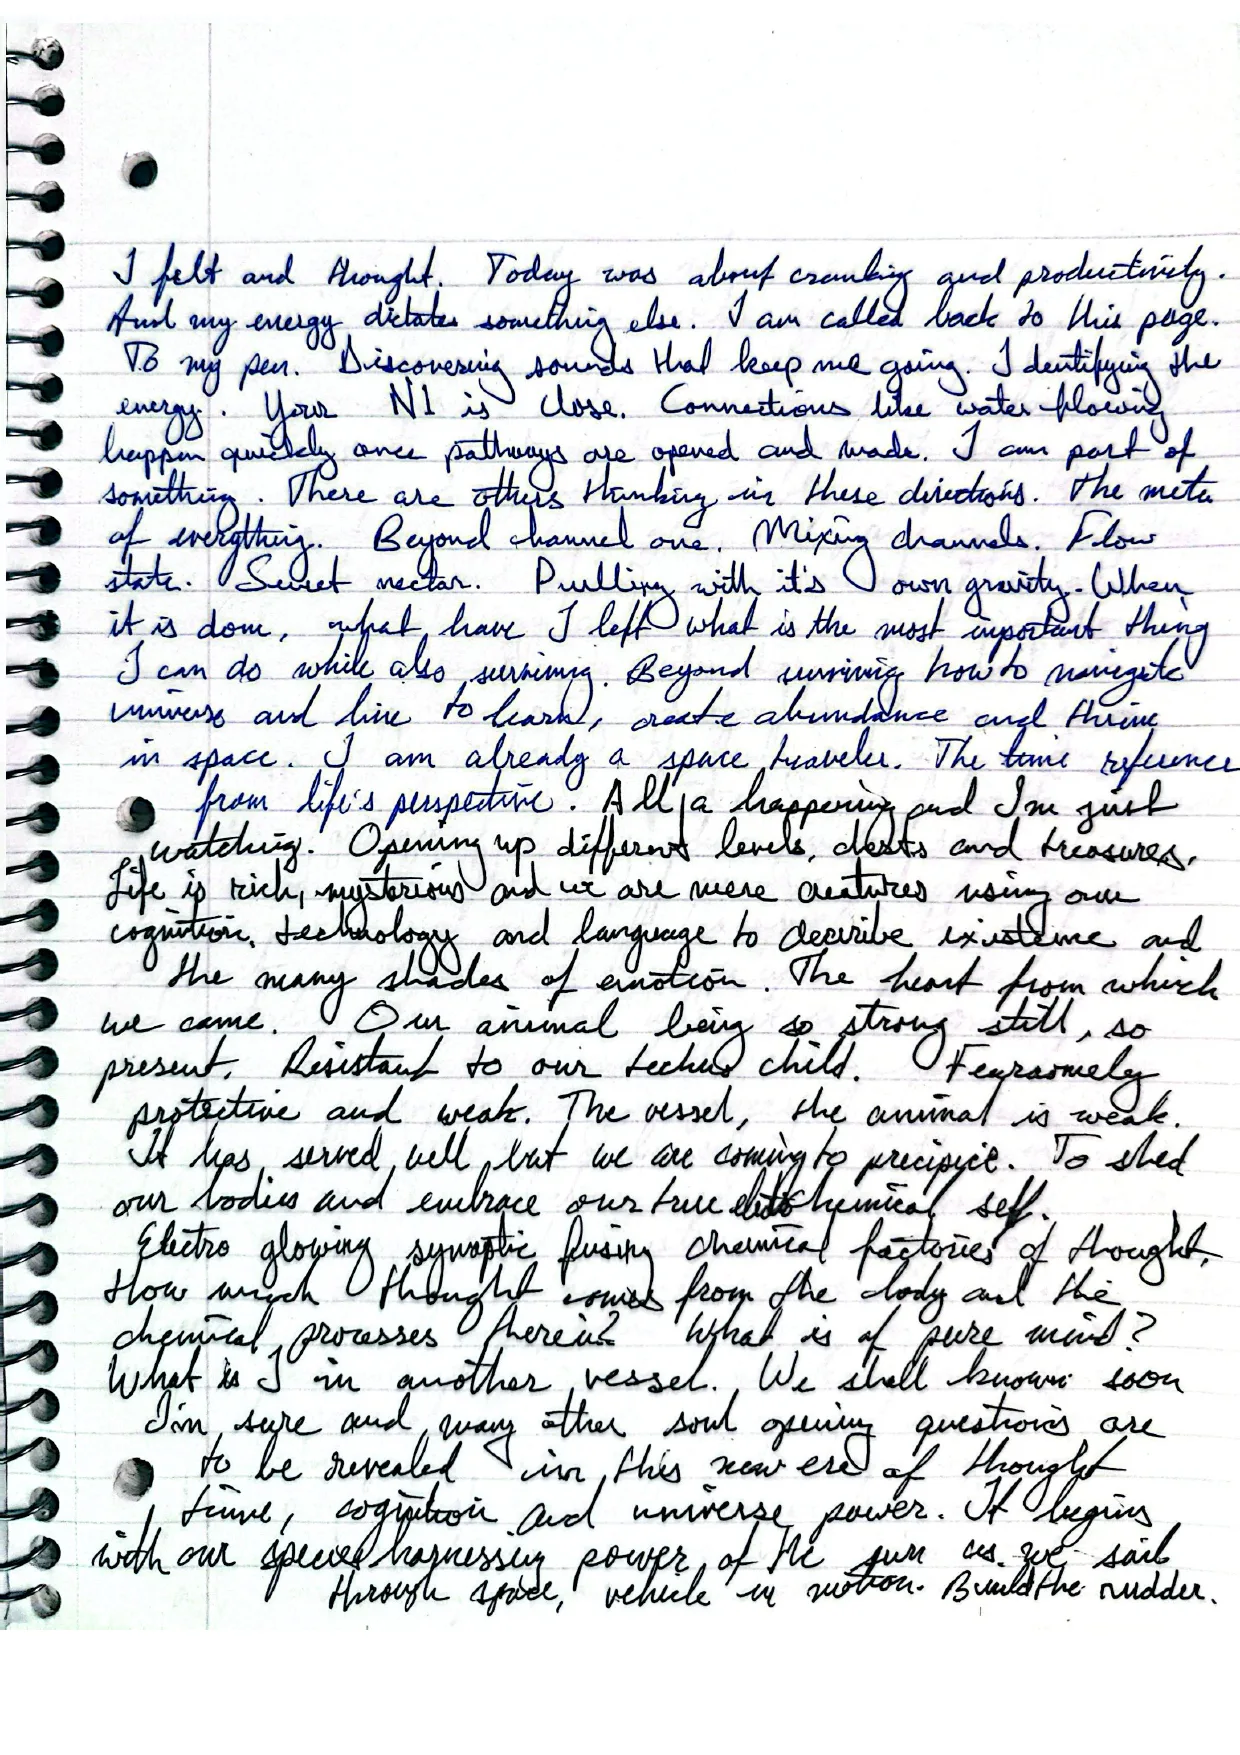 I felt and thought. Today was about cranking and productivity.
And my energy dictates something else. I am called back to this page.
To my pen. Discovering sounds that keep me going. Identifying the
energy. Your N1 is close. Connections like water flowing
happen quickly once pathways are opened and made. I am part of
something. There are others thinking in these directions. The meta
of everything. Beyond channel one. Mixing channels. Flow
state. Sweet nectar. Pulling with it's own gravity. When
it is done, what have I left what is the most important thing
I can do while also surviving. Beyond surviving how to navigate
universe and live to learn, create abundance and thrive
in space. I am already a space traveler. The time reference
from life's perspective. All a happening and I'm just
watching. Opening up different levels, chests and treasures.
Life is rich, mysterious and we are mere creatures using our
cognition, technology and language to describe existence and
the many shades of emotion. The heart from which
we came. Our animal being so strong still, so
present. Resistant to our techno child. Fearsomely
protective and weak. The vessel, the animal is weak.
It has served well but we are coming to precipice. To shed
our bodies and embrace our true electrochemical self.
Electro glowing synaptic fusing chemical factories of thought.
How much thought comes from the body and the
chemical processes therein? What is of pure mind?
What is I in another vessel. We shall known soon
I'm sure and many other soul opening questions are
to be revealed in this new era of thought
, time, cognition and universe power. It begins
with our species harnessing power of the sun as we sail
through space, vehicle in motion. Build the rudder.